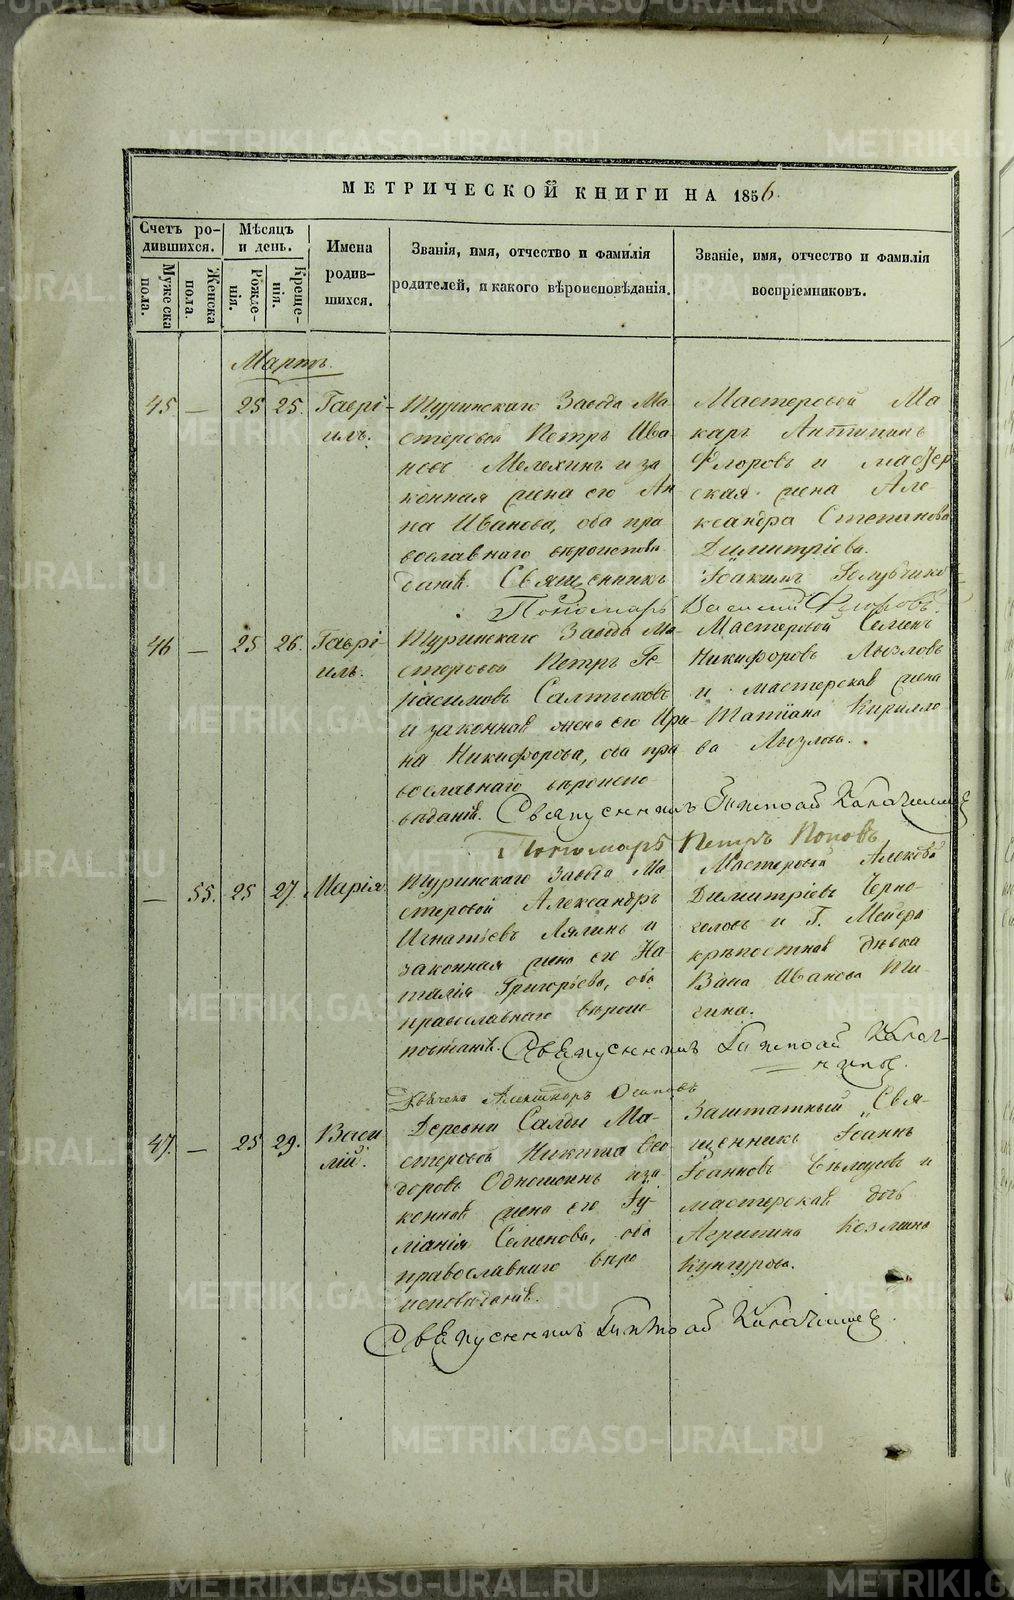 МЕТРИЧЕСКОЙ КНИГИ НА 1856.
Счетъ ро-
дившихся.
Мужеска
пола.
Женска
пола.
Мѣсяцъ
и день.
Рожде-
нія.
Креще-
нія.
Имена
родив-
шихся.
Званія, имя, отчество и фамилія
родителей, и какого вѣроисповѣданія.
Званіе, имя, отчество и фамилія
воспріемниковъ.
Мартъ.
45 — 25 25. Гаврі-
илъ.
Туринскаго Завода Ма-
стеровой Петръ Ива-
новъ Мелехинъ и за
конная жена его Ан
на Иванова, оба пра
вославнаго вѣроисповѣ
данія. Священникъ
Мастеровой Ма
каръ Антипинъ
Флоровъ и мастер
ская жена Але-
ксандра Степанова
Димитріева.
Іоакимъ
Пономарь Василий Флоровъ.
46 — 25 26. Гаврі-
илъ.
Туринскаго Завода Ма-
стеровой Петръ Ге
расимовъ Салтыковъ
и законная жена его Ири-
на Никифорова, оба пра
вославнаго вѣроиспо
вѣданія.
Мастеровой Семенъ
Никифоровъ Лызловъ
и мастерская жена
Татіана Кирилло
ва Лызлова.
Священникъ
Пономарь Петръ Поповъ
— 55. 25 27. Марія
Туринскаго Завода Ма
стеровой Александръ
Игнатьевъ Лялинъ и
законная жена его На-
талія Григорьева, оба
православнаго вѣрои-
повѣданія.
Мастеровой Алексѣй
Димитріевъ Черно-
головъ и Г. Мейера
крѣпостная дѣвка
Иванова
Священникъ
Дьячекъ Александръ Осиповъ
47. — 25 29. Васи
лій.
Деревни Салды Ма-
стеровой Никита Ѳео
доровъ и за
конная жена его Іу-
ліанія Семенова, оба
православнаго вѣро
исповѣданія.
Заштатный Свя-
щенникъ Іоаннъ
Іоанновъ и
мастерская дочь
Агрипина Козмина
Кунгурова.
Священникъ
METRIKI.GASO-URAL.RU